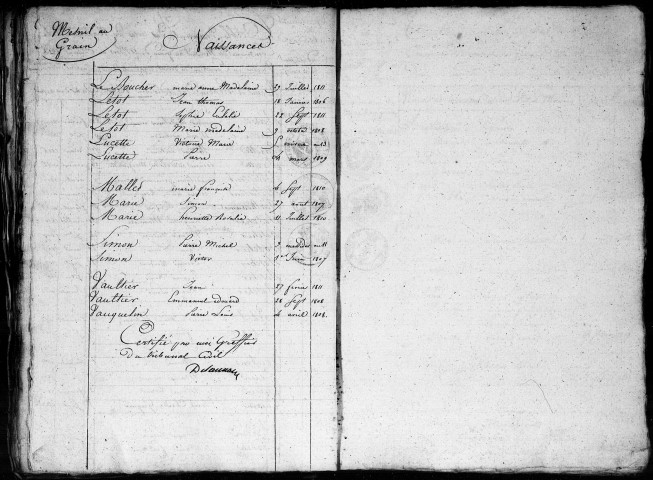 Mesnil au
Grain
Naissances
Le Boucher marie anne Madeleine 29 Juillet 1811
Letot Jean thomas 18 Janvier 1806
Letot 22 Sept 1811
Letot Marie madelaine 9 octobre 1808
Lucette Victoire Marie nivose an 13
Lucette Pierre 26 mars 1809
Malles marie françoise 6 Sept 1810
Marie Simon 27 août 1807
Marie henriette Rosalie 11 Juillet 1810
Simon Pierre Michel 9 an 11
Simon Victor 1er Juin 1807
Vaulthier Jean 27 fevrier 1811
Vaulthier Emmanuel edouard 28 Sept 1808
Vauquelin Pierre Louis 6 avril 1808
Certifié par moi Greffier
Du tribunal Civil